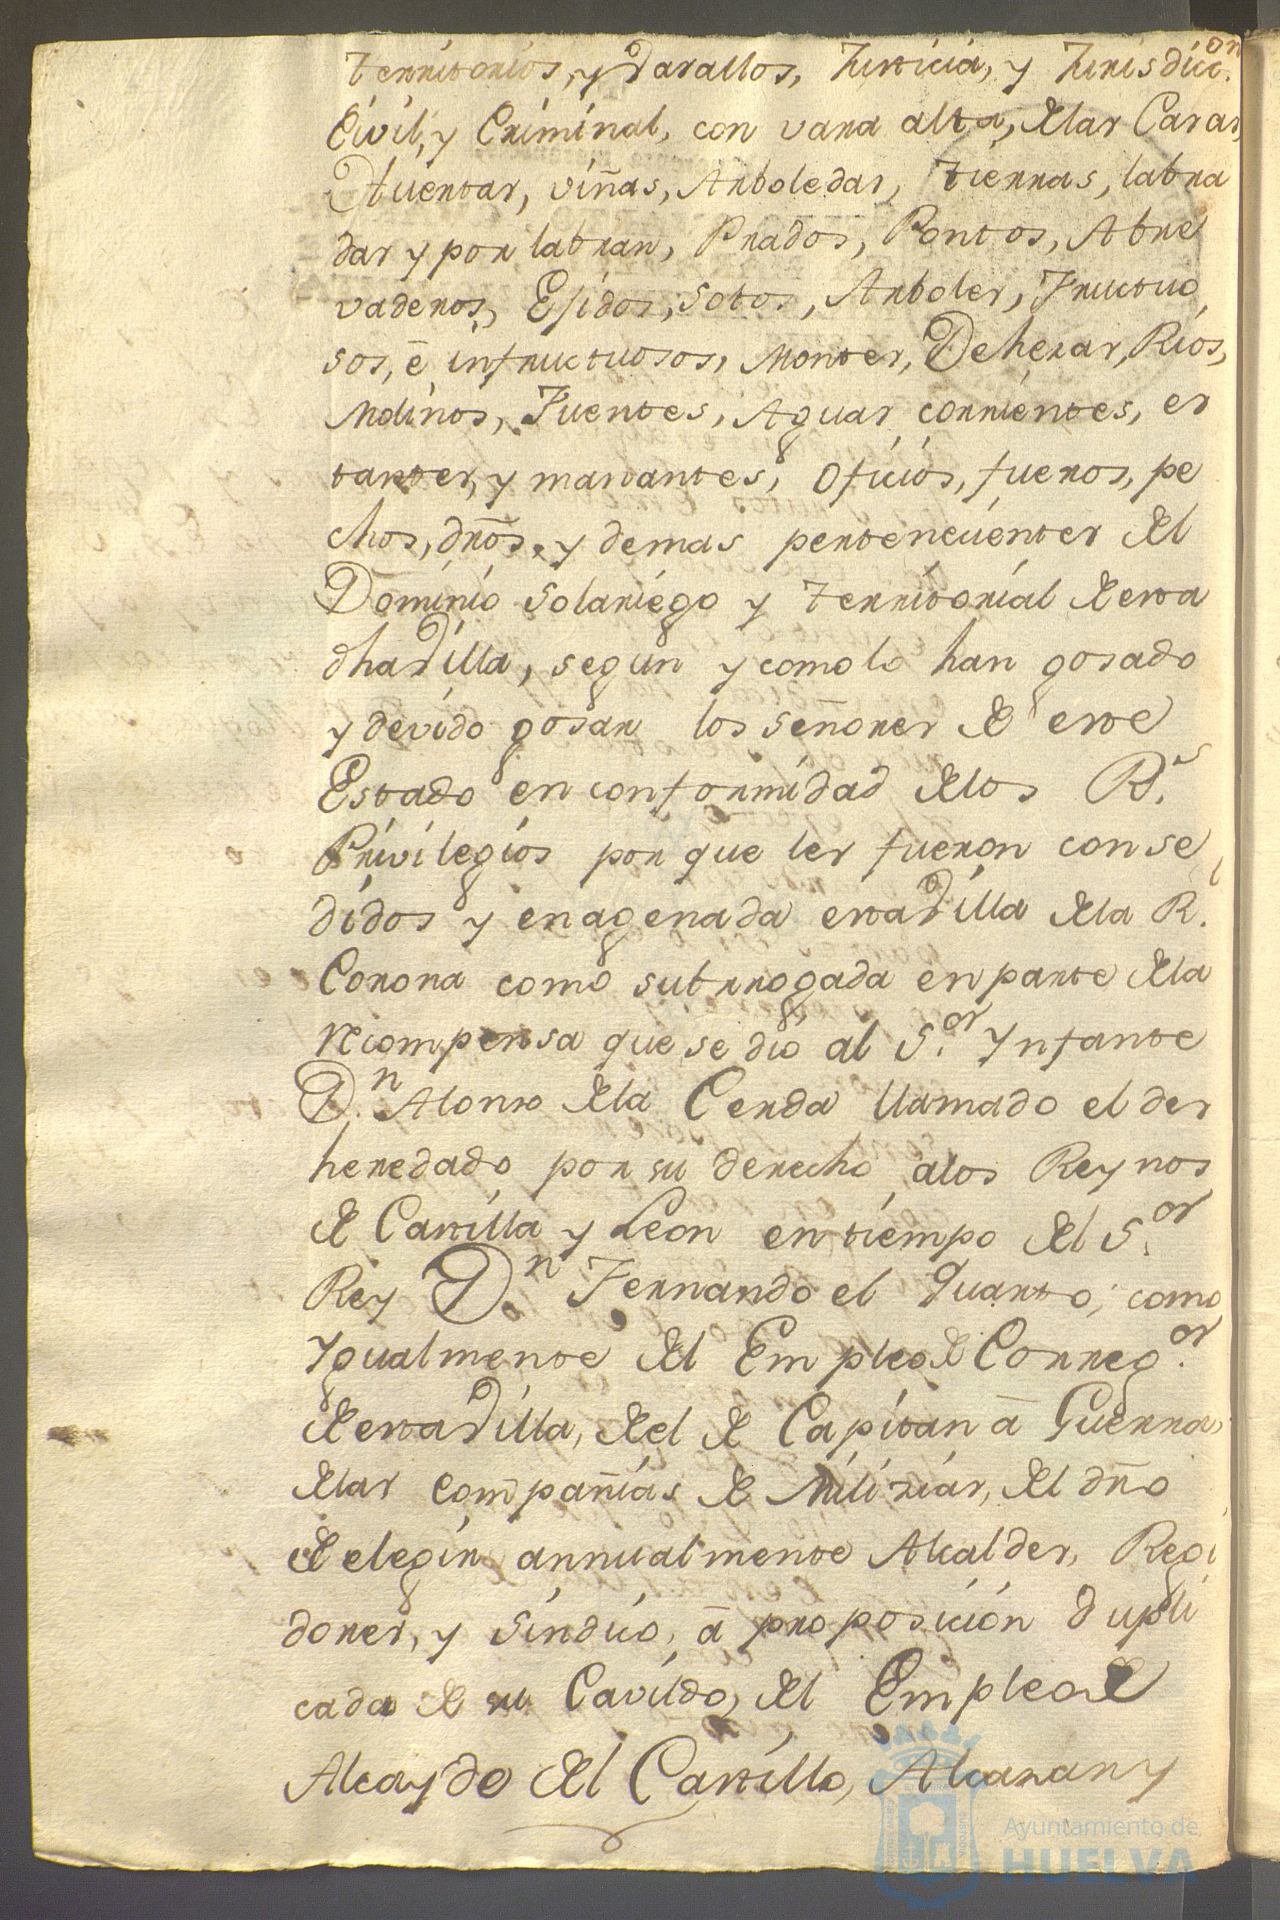 territorios, y Vasallos, Justicia, y Jurisdicc.on
Civil, y Criminal, con vara alta, de las Casas,
Huertas, viñas, Arboledas, tierras, labra
das y por labrar, Prados, Pontos, Abre
vaderos, Exidos, Sotos, Arboles, Fructuo
sos, é infructuosos, Montes, Dehesas, Rios,
Molinos, Fuentes, Aguas corrientes, es
tantes, y manantes, Oficios, fueros, pe
chos, dr̃os, y demas pertenecientes del
Dominio Solariego y territorial de esta
dha Villa, segun y como lo han gosado
y devido gosar los señores de este
Estado en conformidad de los R.s
Privilegios por que les fueron conse
didos y enagenada esta Villa de la R.l
Corona como subrrogada en parte de la
recompensa que se dió al S.or Ynfante
D.n Alonso de la Cerda llamado el des
heredado por su derecho a los Reynos
de Castilla y Leon en tiempo del S.or
Rey D.n Fernando el Quarto; como
Ygualmente del Empleo de Correg.or
de esta Villa, del de Capitan á Guerra,
de las Compañias de Milizias, del dr̃o
de elegir annualmente Alcaldes, Regi
dores, y Sindico, á proposición dupli
cada de su Cavildo, del Empleo de
Alcayde del Castillo, Alcazar y
Ayuntamiento de
HUELVA